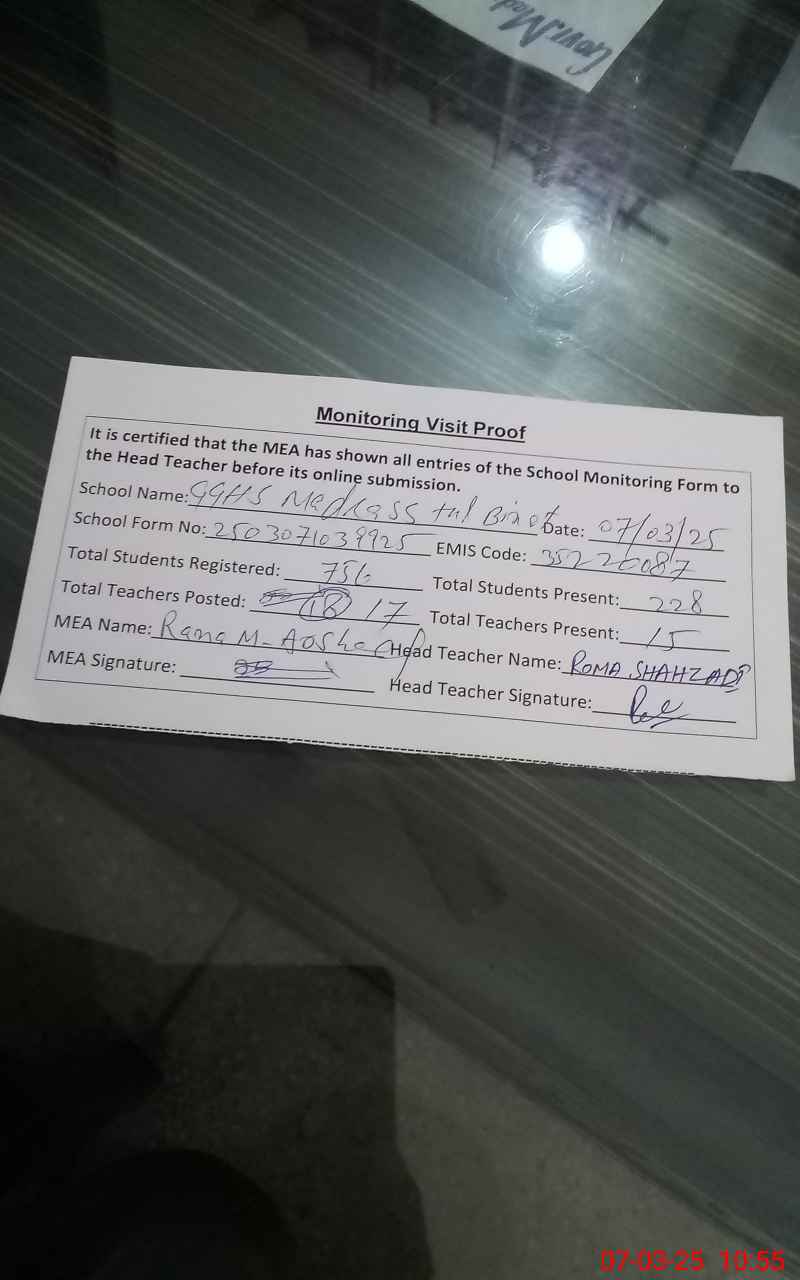 Govt. Mod
Monitoring Visit Proof
It is certified that the MEA has shown all entries of the School Monitoring Form to
the Head Teacher before its online submission.
School Name: GGHS Madrass tul Binat Date: 07/03/25
School Form No: 2503071039925 EMIS Code: 35220087
Total Students Registered: 756 Total Students Present: 228
Total Teachers Posted: 18 17 Total Teachers Present: 15
MEA Name: Rana M- Head Teacher Name: ROMA SHAHZADI
MEA Signature: Head Teacher Signature:
07-03-25 10:55